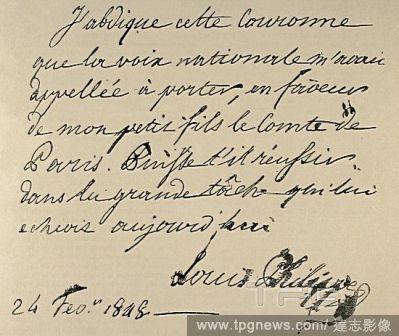 J'abdique cette Couronne
que la voix nationale m'avait
appellée à porter, en faveur
de mon petit fils le Comte de
Paris. Puisse t'il réussir
dans la grande tâche qui lui
echoit aujourd'hui
Louis Philippe
24 Fev.r 1848.
www.tpgnews.com / 達志影像